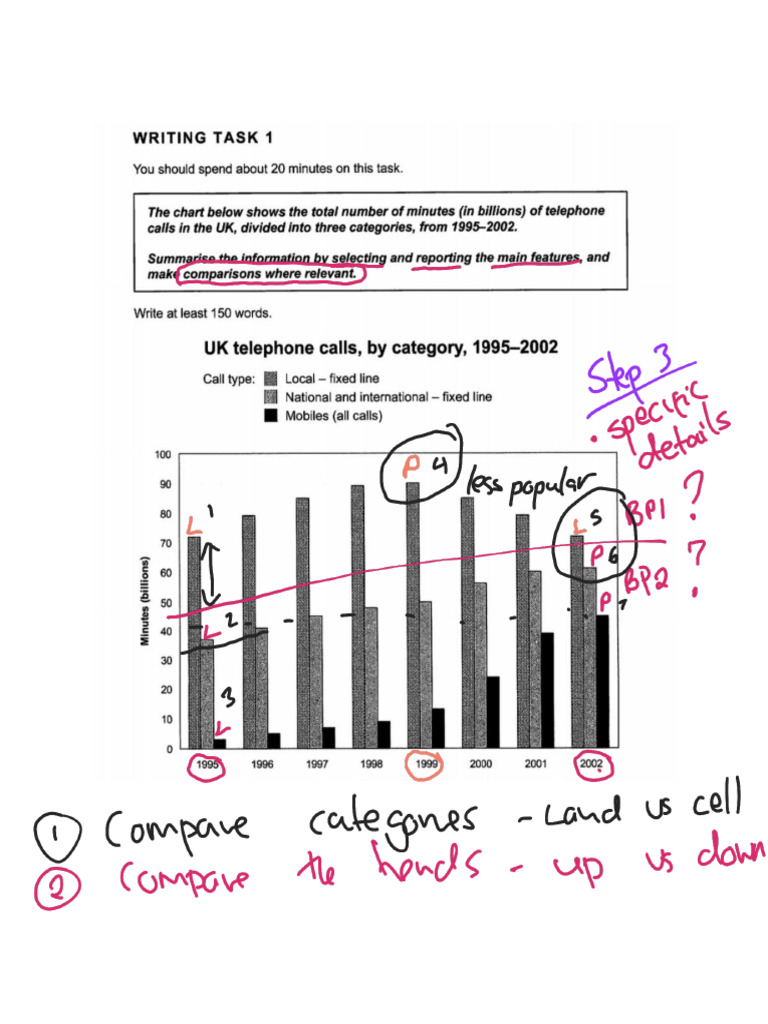 WRITING TASK 1
You should spend about 20 minutes on this task.
The chart below shows the total number of minutes (in billions) of telephone
calls in the UK, divided into three categories, from 1995–2002.
Summarise the information by selecting and reporting the main features, and
make comparisons where relevant.
Write at least 150 words.
UK telephone calls, by category, 1995–2002
Call type:
Local – fixed line
National and international – fixed line
Mobiles (all calls)
Step 3
• specific
details
100
90
80
70
60
50
40
30
20
10
0
Minutes (billions)
P 4
less popular
L 1
L 5
BP1 ?
P 6
BP2 ?
P 7
L 2
3
L
1995 1996 1997 1998 1999 2000 2001 2002
1 Compare categories - Land vs cell
2 Compare the trends - up vs down